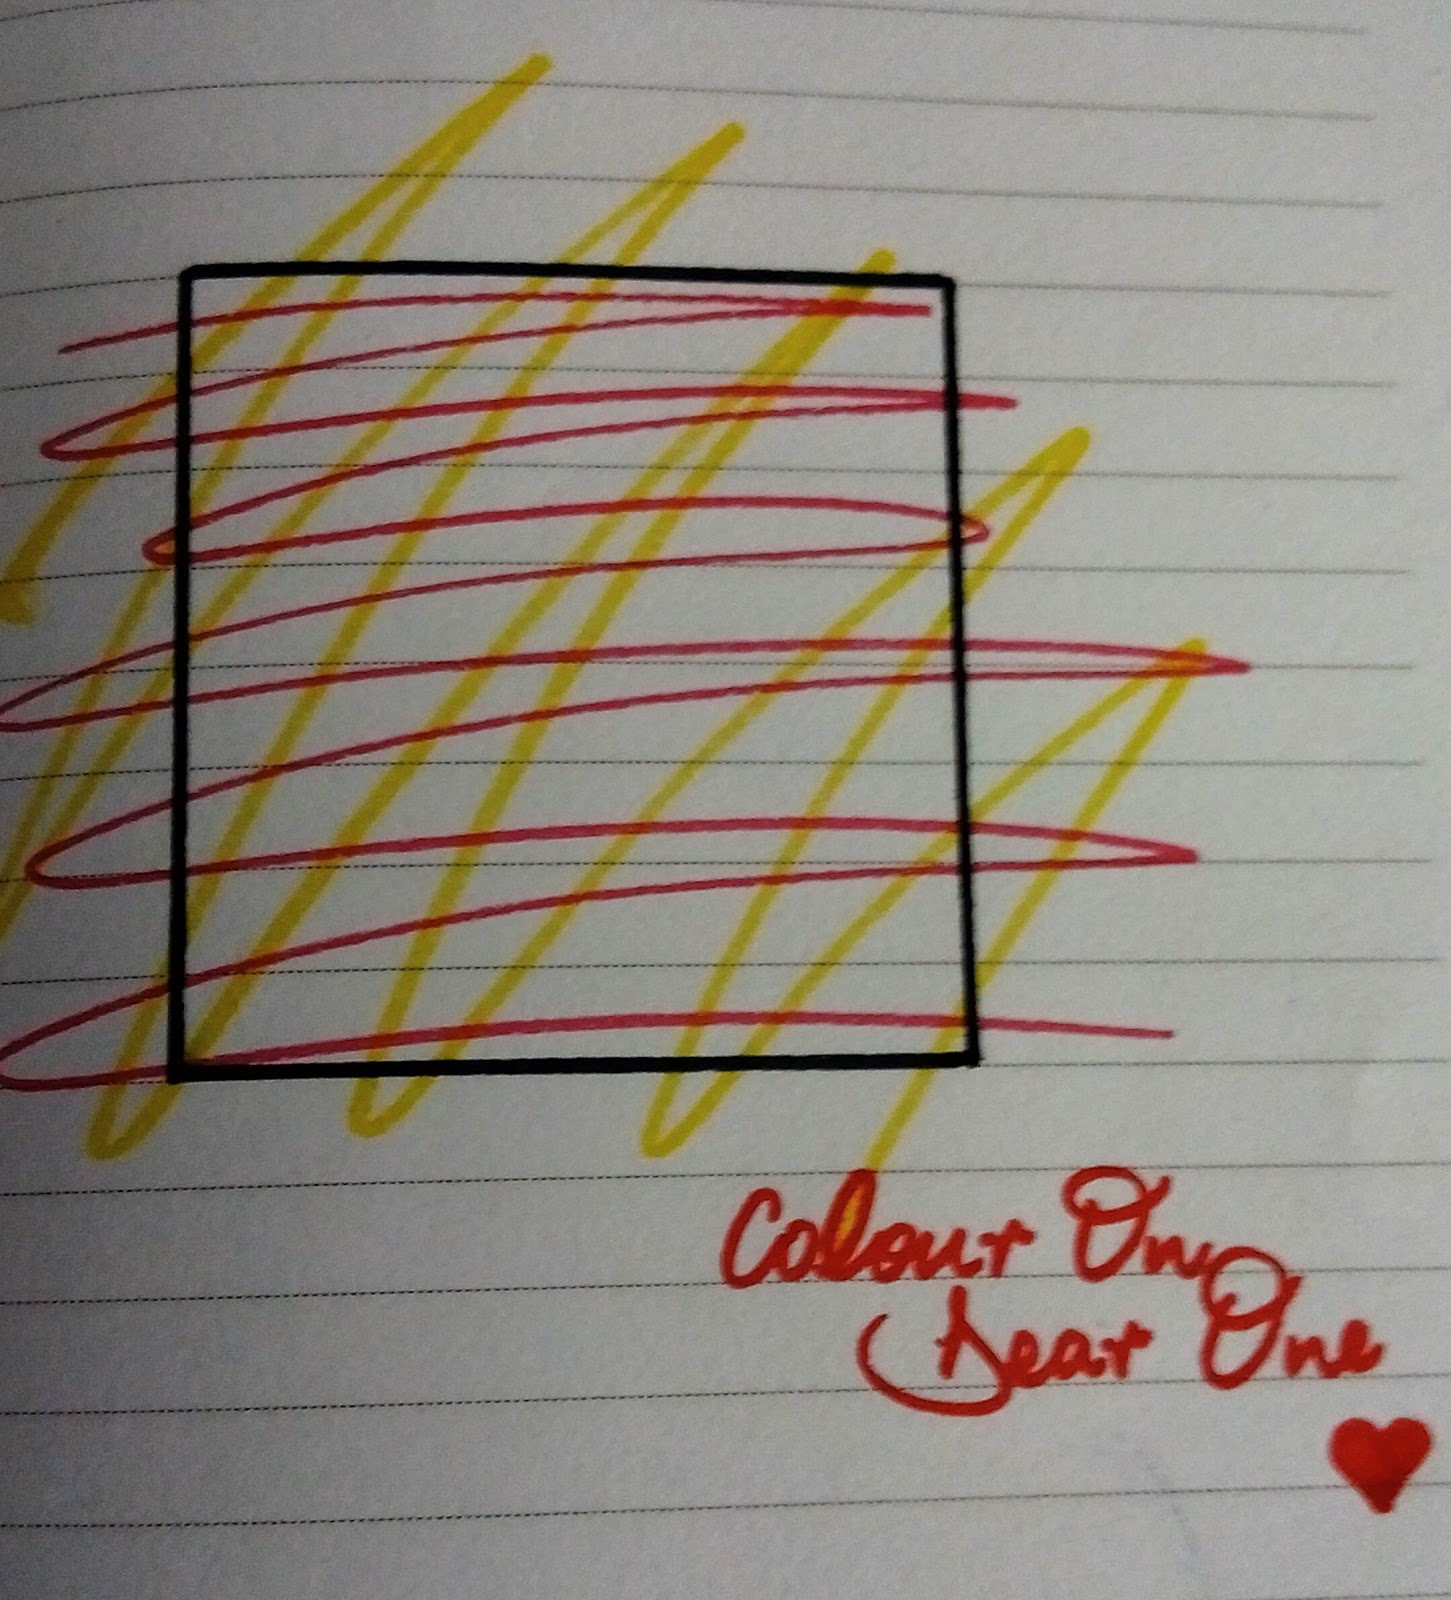 Colour On,
Dear One